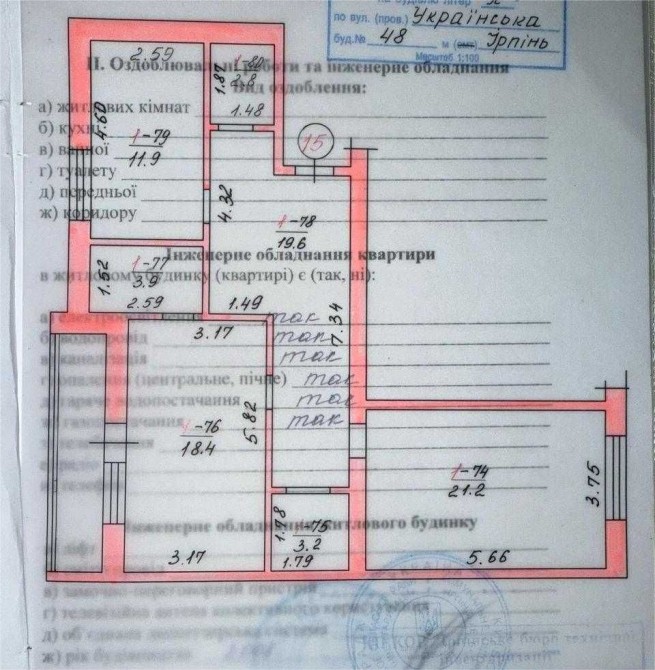 на будівлю літер
по вул. (пров.) Українська
буд.№ 48 м (смт) Ірпінь
Масштаб 1:100
2.59
1-80
2.8
1.87
1.48
II. Оздоблювальні роботи та інженерне обладнання
Вид оздоблення:
а) житлових кімнат
б) кухні
в) ванної
г) туалету
д) передньої
ж) коридору
4.60
1-79
11.9
15
4.32
1-78
19.6
Інженерне обладнання квартири
в житловому будинку (квартирі) є (так, ні):
1.52
1-77
3.9
2.59
1.49
7.34
3.17
а) електроосвітлення так
б) водопровід так
в) каналізація так
г) опалення (центральне, пічне) так
д) гаряче водопостачання так
так
5.82
1-76
18.4
1-74
21.2
3.75
Інженерне обладнання житлового будинку
1.78
1-75
3.2
1.79
3.17
5.66
а) ліфт
в) замочно-переговорний пристрій
г) телевізійна антена колективного користування
д) об'єднана диспетчерська система
ж) рік будівництва